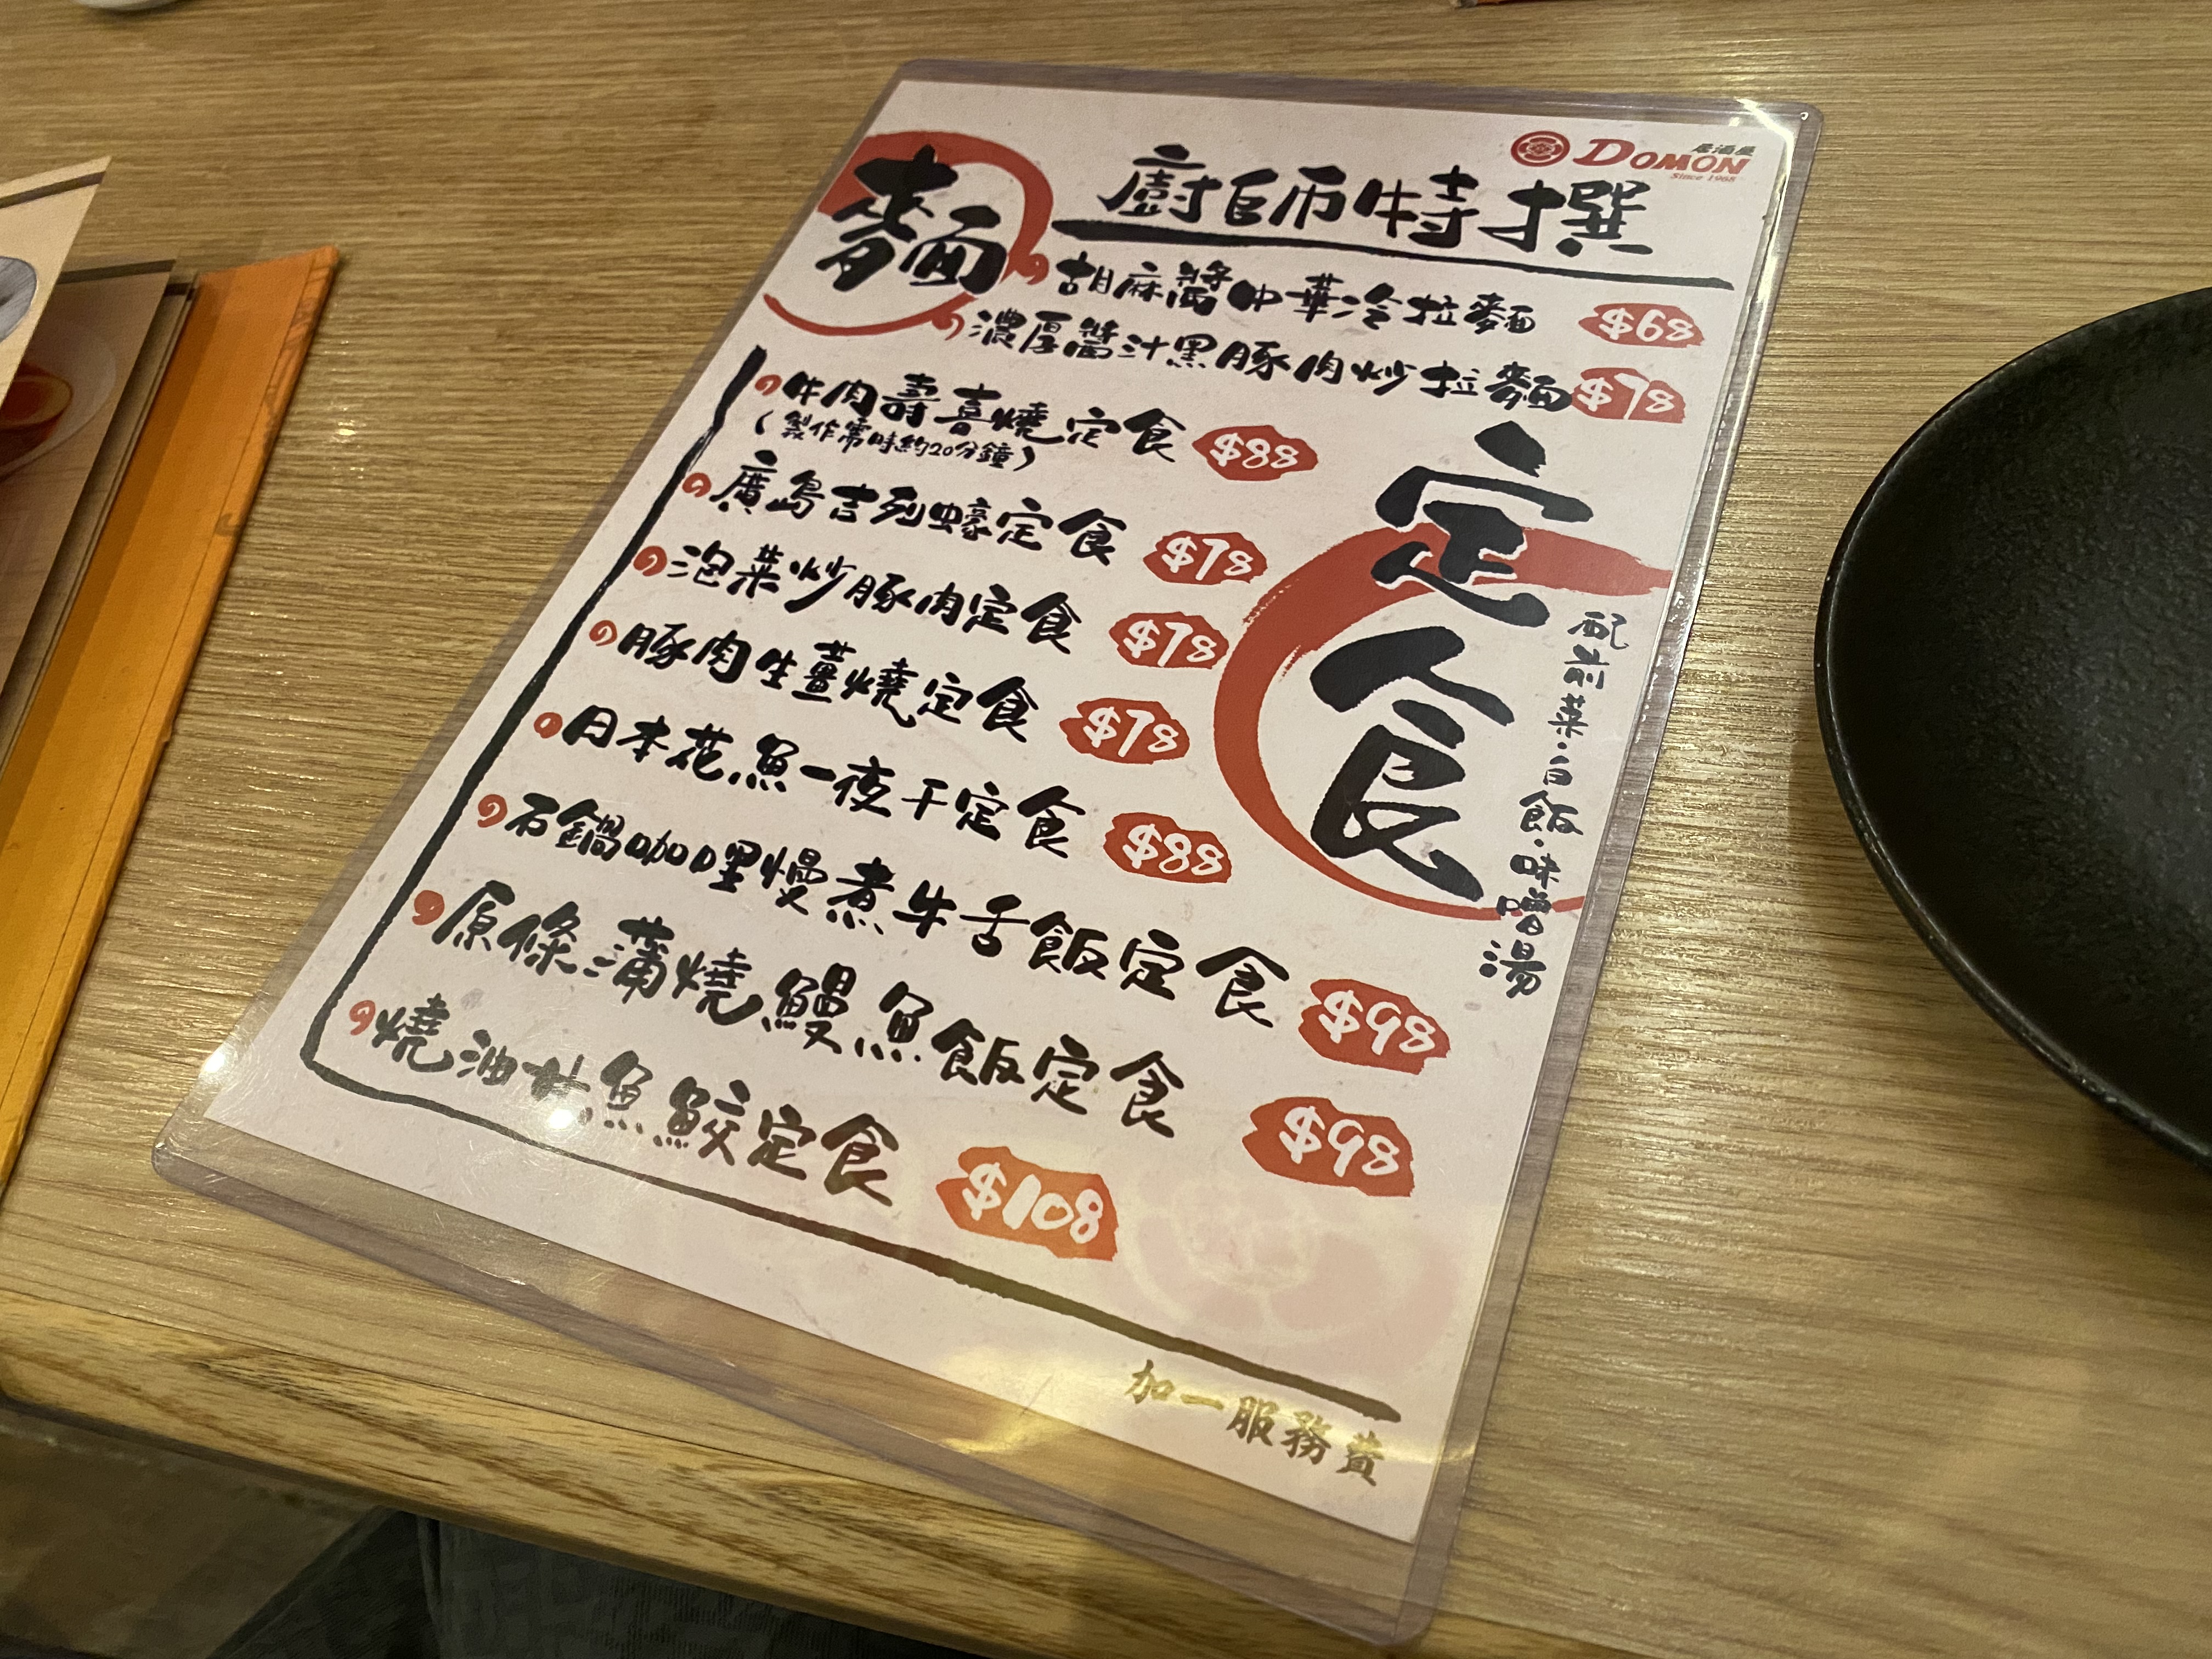 居酒屋
DOMON
Since 1968
廚師特撰
麵
胡麻醬中華冷拉麵 $68
濃厚醬汁黑豚肉炒拉麵 $78
定食
配前菜·白飯·味噌湯
牛肉壽喜燒定食 $88
(製作需時約20分鐘)
廣島吉列蠔定食 $78
泡菜炒豚肉定食 $78
豚肉生薑燒定食 $78
日本花魚一夜干定食 $88
石鍋咖哩慢煮牛舌飯定食 $98
原條蒲燒鰻魚飯定食 $98
燒油甘魚鮫定食 $108
加一服務費